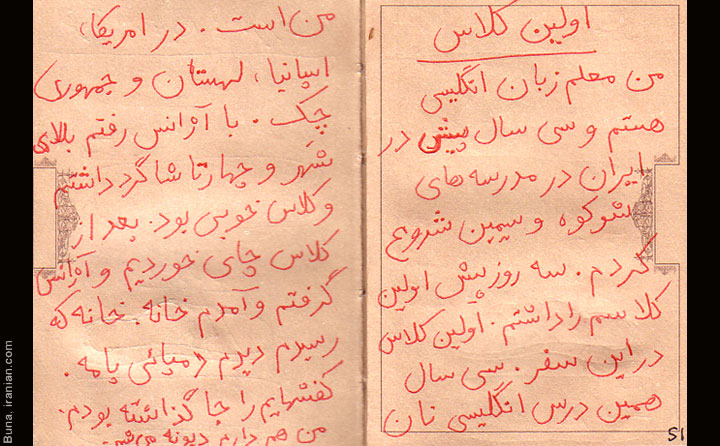 اولین کلاس
من معلم زبان انگلیسی
هستم و سی سال پیش در
ایران در مدرسه های
شوکوه و سیمین شروع
کردم. سه روز پیش اولین
کلاسم را داشتم. اولین کلاس
در این سفر. سی سال
همین درس انگلیسی نان
51
من است. در امریکا،
اسپانیا، لهستان و جمهوری
چک. با آژانس رفتم بالای
شهر و چهارتا شاگرد داشتم
و کلاس خوبی بود. بعد از
کلاس چای خوردیم و آژانس
گرفتم و آمدم خانه. خانه که
رسیدم دیدم دمپائی پامه.
کفشهایم را جا گذاشته بودم.
من هم دارم دیونه می شم.
Buna, iranian.com